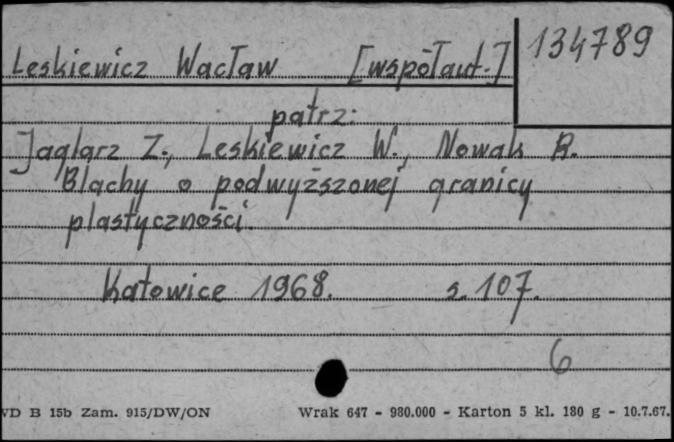 134789
Leskiewicz Wacław [współaut.]
patrz:
Jaglarz Z., Leskiewicz W., Nowak R.
Blachy o podwyższonej granicy
plastyczności.
Katowice 1968. s. 107.
6
VD B 15b Zam. 915/DW/ON Wrak 647 - 980.000 - Karton 5 kl. 180 g - 10.7.67.